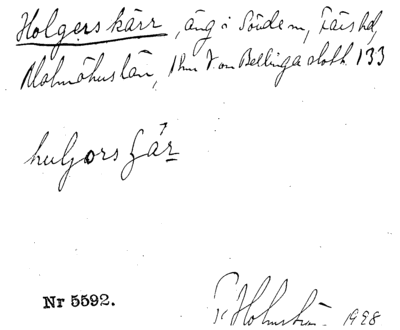 Holgers kärr, äng i Södem, Färs hd,
Malmöhus län, 1 km V om Bellinga slott. 133
huljors çár
Nr 5592.
Holmström. 1928